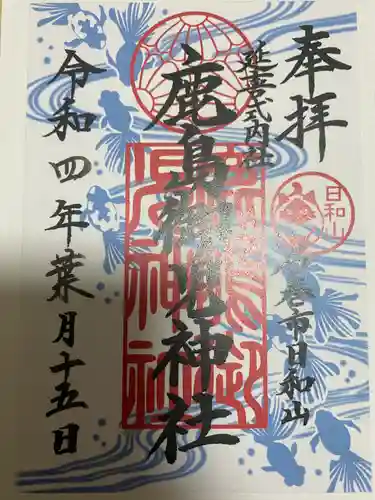 奉拝
延喜式内社
石巻市日和山
日和山
鹿島御児神社
令和四年葉月十五日